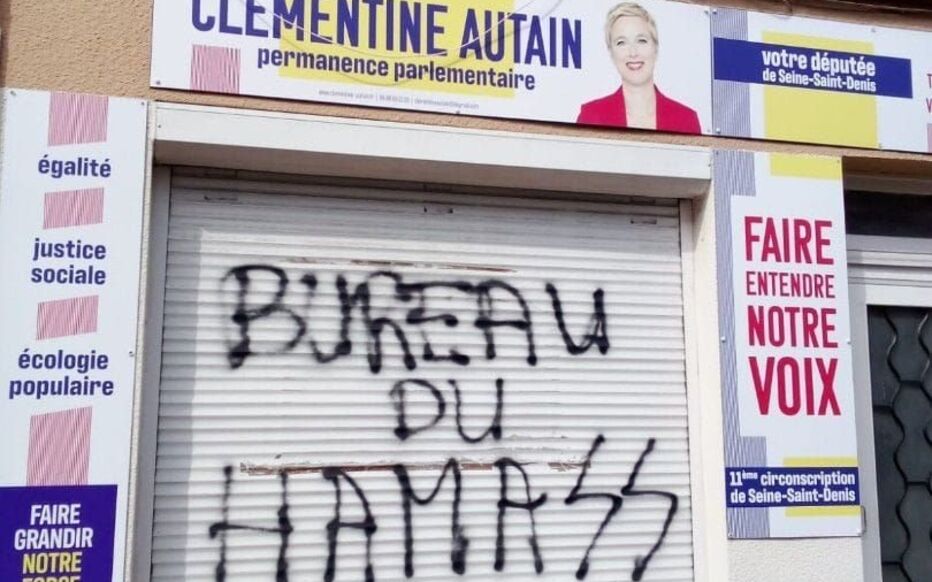 CLÉMENTINE AUTAIN
permanence parlementaire
votre députée
de Seine-Saint-Denis
égalité
justice
sociale
écologie
populaire
FAIRE
GRANDIR
NOTRE
FORCE
BUREAU
DU
HAMASS
FAIRE
ENTENDRE
NOTRE
VOIX
11ème circonscription
de Seine-Saint-Denis